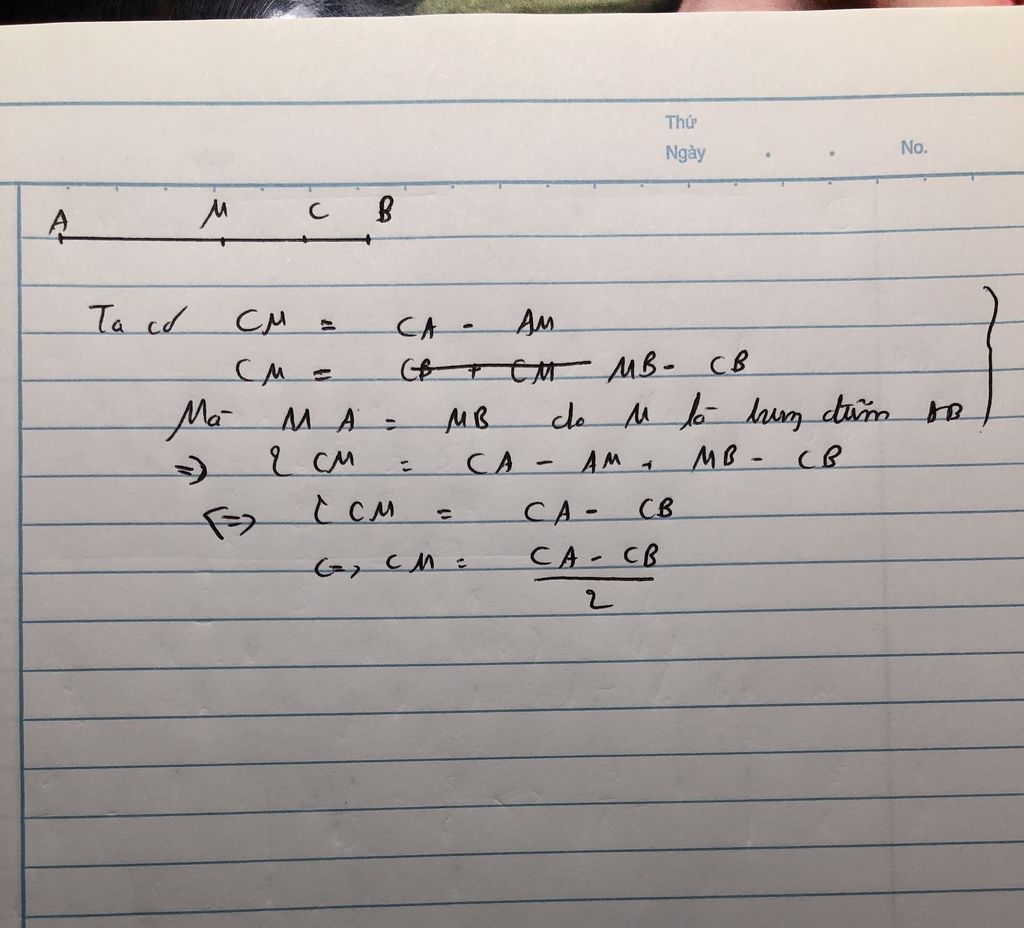 Thứ
Ngày . . No.
A M C B
Ta có CM = CA - AM
CM = MB - CB
Mà MA = MB do M là trung điểm AB
=> 2 CM = CA - AM + MB - CB
<=> 2 CM = CA - CB
<=> CM = CA - CB
2